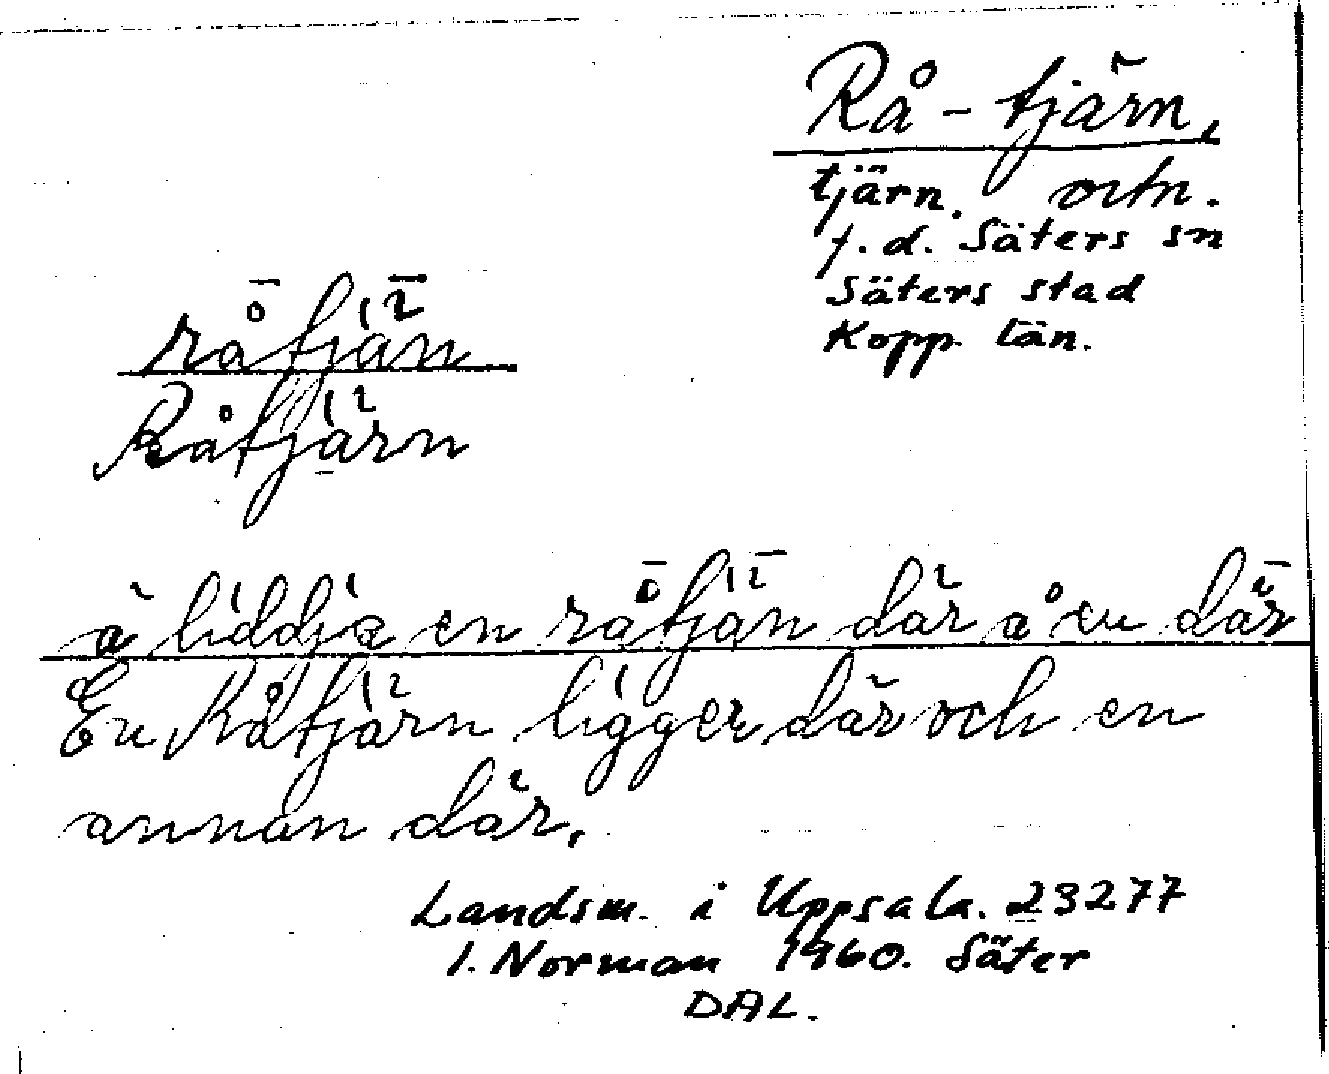 Rå-tjärn,
tjärn. ortn.
f.d. Säters sn
Säters stad
Kopp. län.
rå̄tjǟn
Råtjärn
ä liddja en rå̄tjǟn där å en där̄
En Råtjärn ligger där och en
annan där.
Landsm. i Uppsala. 23277
I. Norman 1960. Säter
DAL.